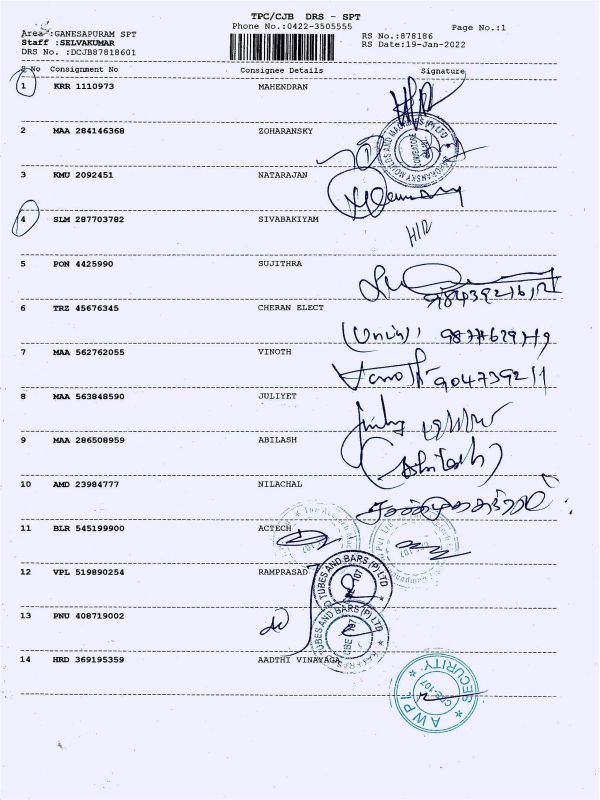 TPC/CJB DRS - SPT
Phone No.:0422-3505555
Page No.:1
Area :GANESAPURAM SPT
Staff :SELVAKUMAR
DRS No. :DCJB87818601
RS No.:878186
RS Date:19-Jan-2022
S No Consignment No Consignee Details Signature
1 KRR 1110973 MAHENDRAN
H/R
2 MAA 284146368 ZOHARANSKY
3 KMU 2092451 NATARAJAN
4 SLM 287703782 SIVABAKIYAM
H/R
5 PON 4425990 SUJITHRA
6 TRZ 45676345 CHERAN ELECT
7 MAA 562762055 VINOTH
8 MAA 563848590 JULIYET
9 MAA 286508959 ABILASH
(Abhilash)
10 AMD 23984777 NILACHAL
11 BLR 545199900 ACTECH
12 VPL 519890254 RAMPRASAD
TUBES AND BARS (P) LTD
13 PNU 408719002
TUBES AND BARS (P) LTD
CBE-107
14 HRD 369195359 AADTHI VINAYAGA
SECURITY
CBE-107
AWPL